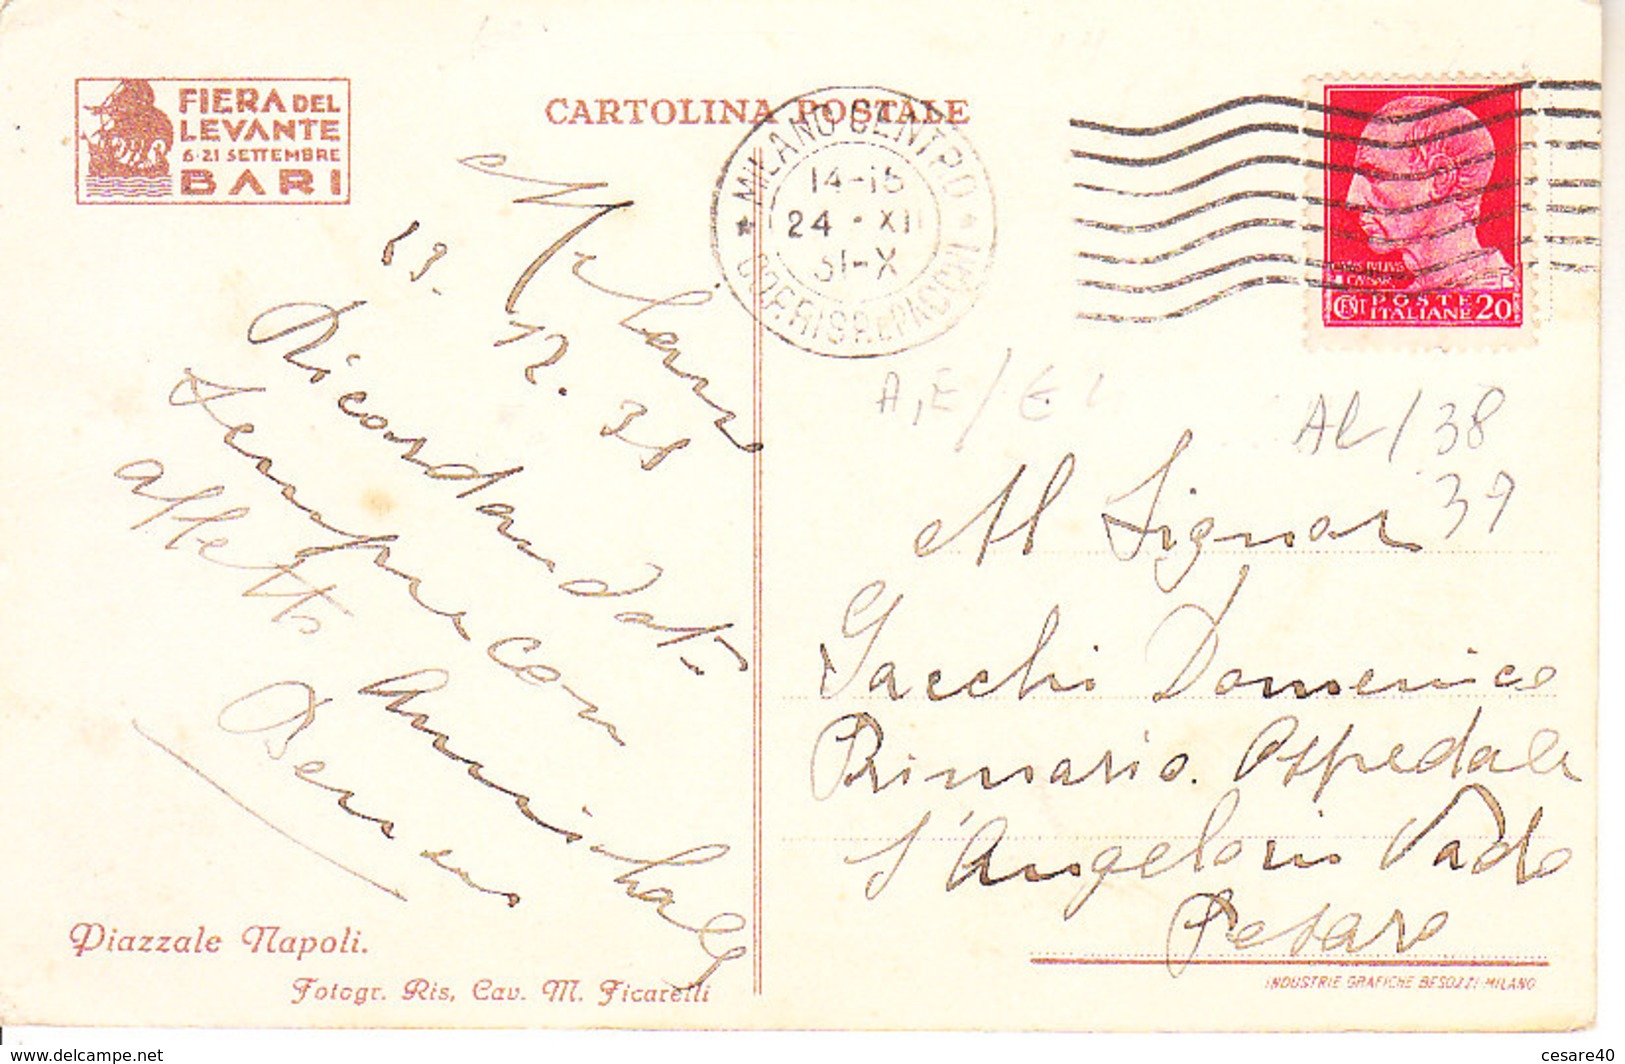 FIERA DEL
LEVANTE
6-21 SETTEMBRE
BARI
CARTOLINA POSTALE
MILANO CENTRO
14-15
24 - XII
31-X
CORRISP. E PACCHI
IULIUS
CAESAR
POSTE
CENT ITALIANE 20
Milano
12. 31
Ricordandoti
sempre con
affetto
A,E/E
AL/38
39
Al Signor
Sacchi Domenico
Primario Ospedale
S'Angelo in Vado
Pesaro
Piazzale Napoli.
Fotogr. Ris, Cav. M. Ficarelli
INDUSTRIE GRAFICHE BESOZZI-MILANO
delcampe.net
cesare40